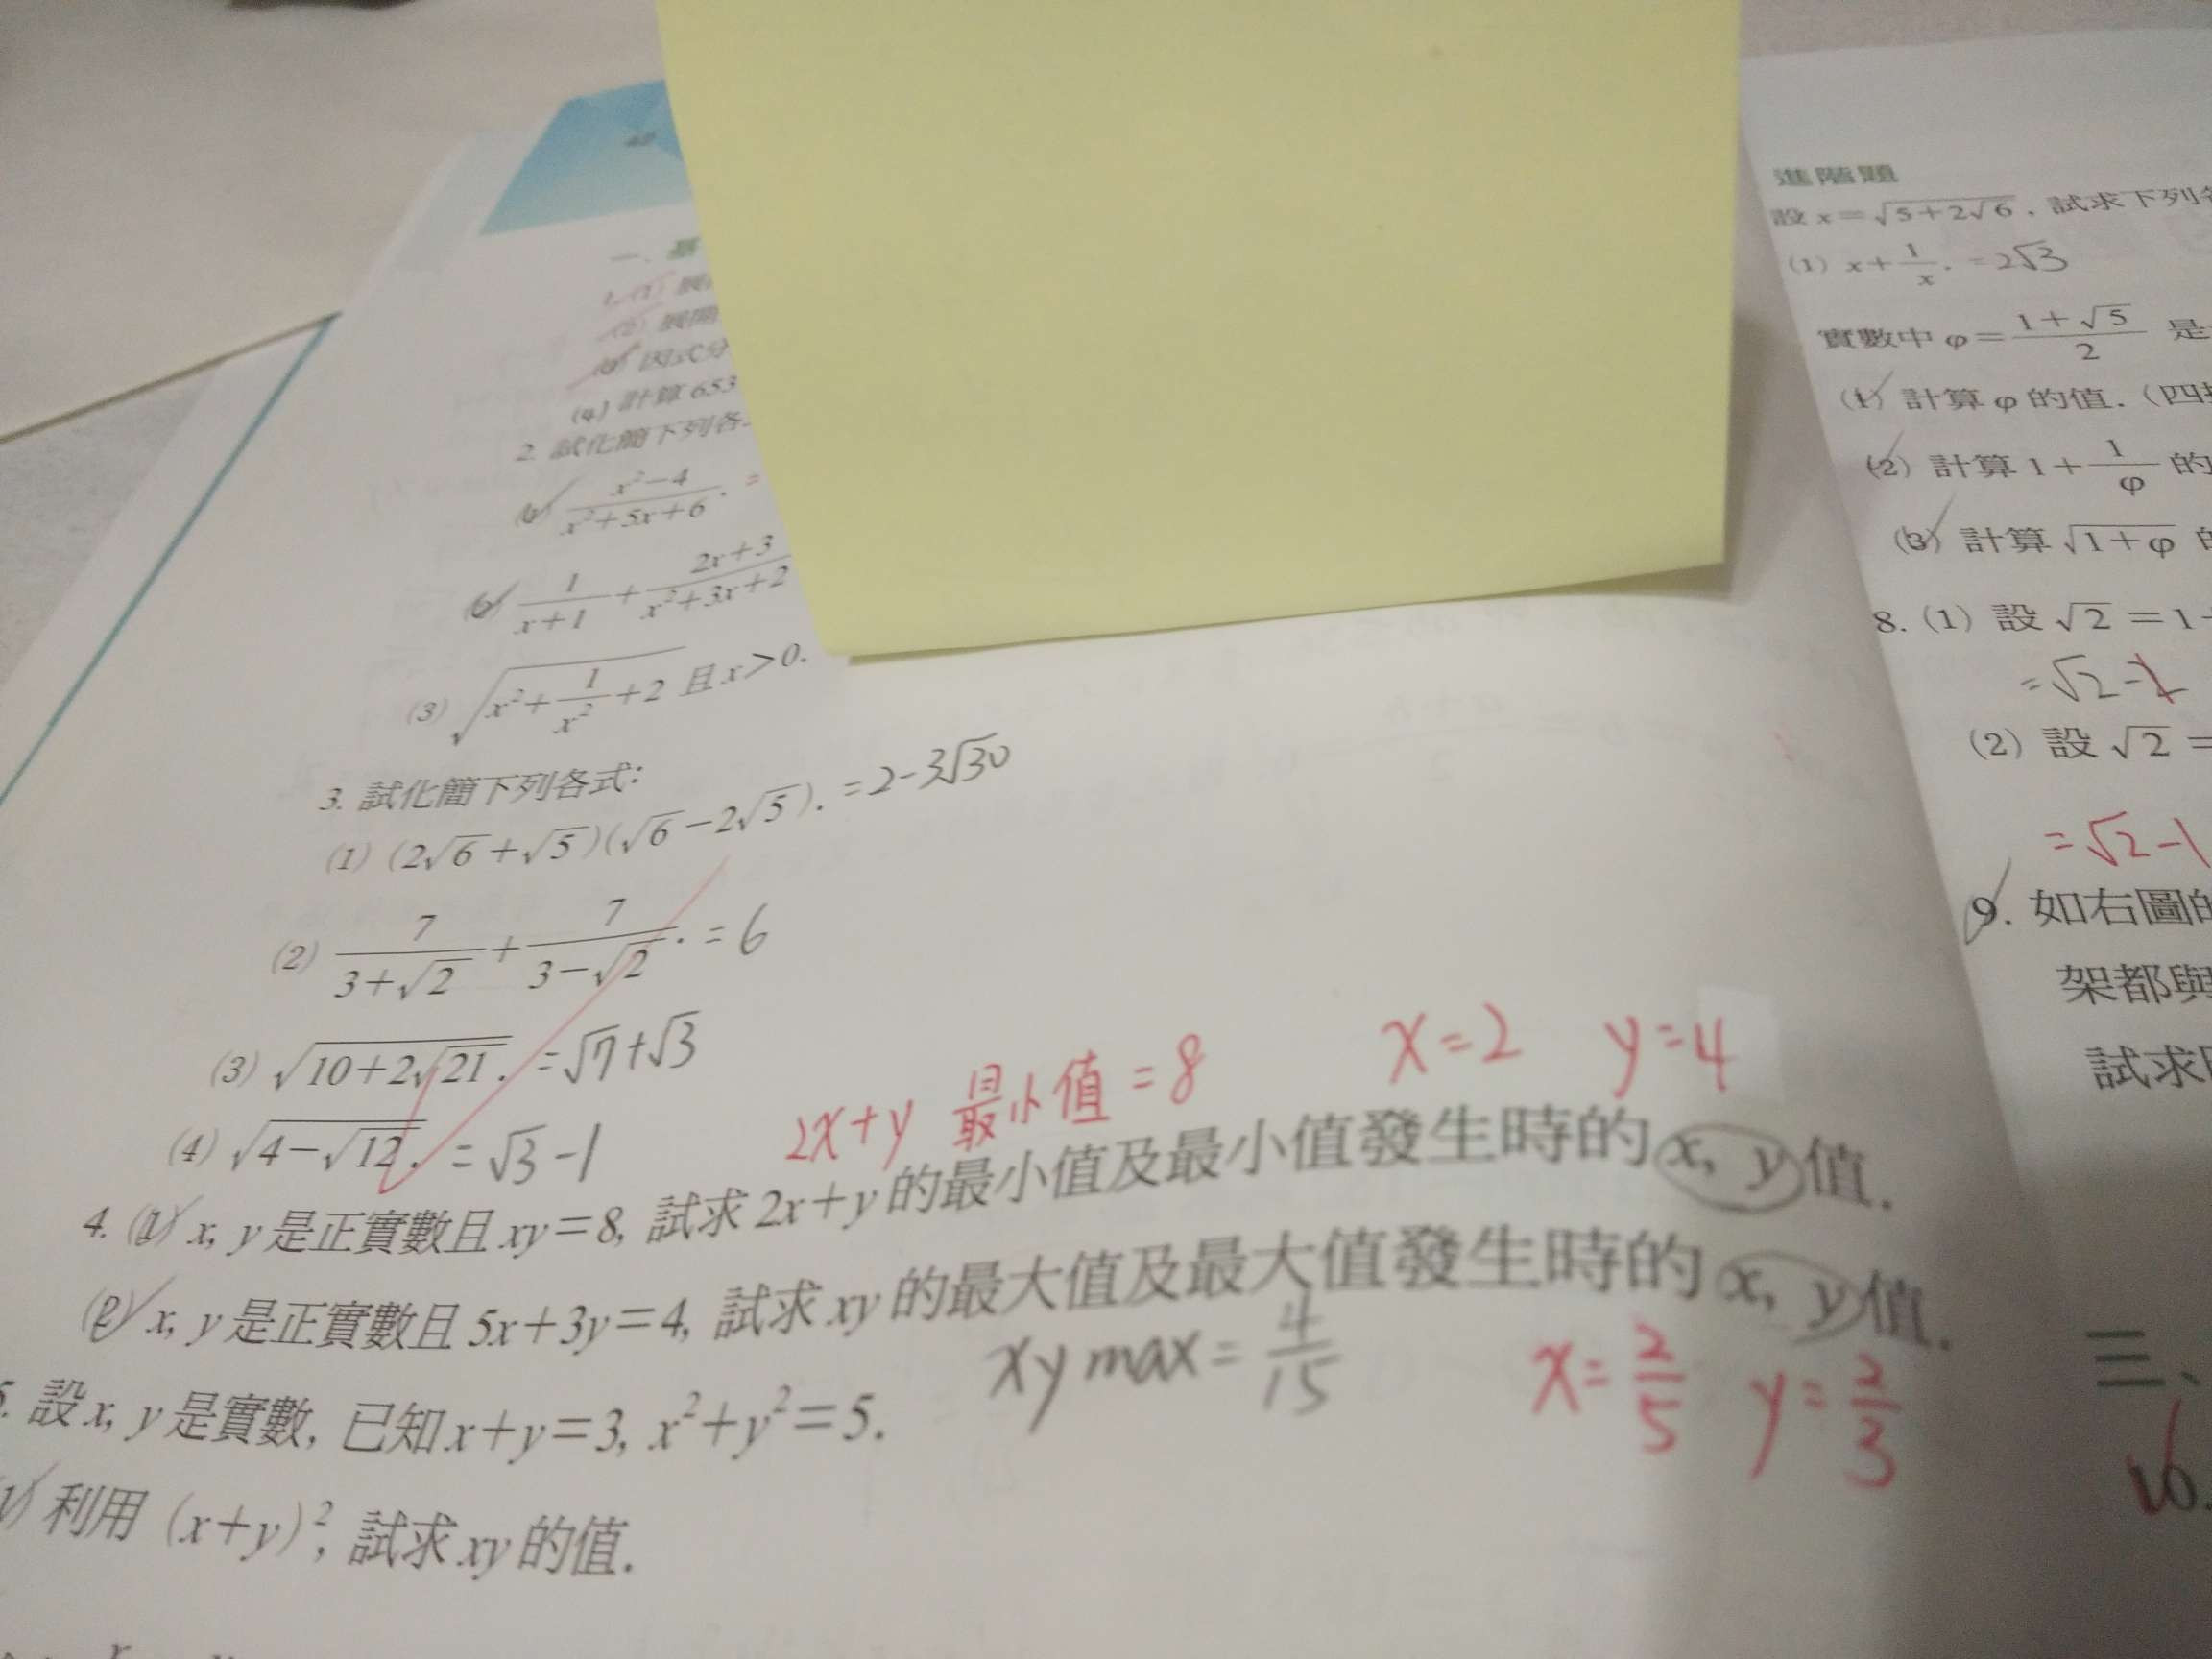 一、基
(1) 展
(2) 展開
(3) 因式分
(4) 計算 653
2. 試化簡下列各
(1) \frac{x^2-4}{x^2+5x+6}. =
(2) \frac{1}{x+1}+\frac{2x+3}{x^2+3x+2}
(3) \sqrt{x^2+\frac{1}{x^2}+2} 且 x>0.
3. 試化簡下列各式:
(1) (2√6+√5)(√6−2√5). =2-3√30
(2) \frac{7}{3+√2}+\frac{7}{3−√2}. =6
(3) \sqrt{10+2\sqrt{21}}. =√7+√3
(4) \sqrt{4−\sqrt{12}}. =√3-1
2x+y 最小值=8 x=2 y=4
4. (1) x, y 是正實數且 xy=8, 試求 2x+y 的最小值及最小值發生時的 x, y 值.
(2) x, y 是正實數且 5x+3y=4, 試求 xy 的最大值及最大值發生時的 x, y 值.
xy max=\frac{4}{15} x=\frac{2}{5} y=\frac{2}{3}
5. 設 x, y 是實數, 已知 x+y=3, x^2+y^2=5.
(1) 利用 (x+y)^2, 試求 xy 的值.
進階題
設 x=\sqrt{5+2\sqrt{6}}, 試求下列各
(1) x+\frac{1}{x}. =2√3
實數中 φ=\frac{1+√5}{2} 是
(1) 計算 φ 的值. (四捨
(2) 計算 1+\frac{1}{φ} 的
(3) 計算 \sqrt{1+φ} 的
8. (1) 設 √2=1+
=√2-1
(2) 設 √2=
=√2-1
9. 如右圖的
架都與
試求
三、